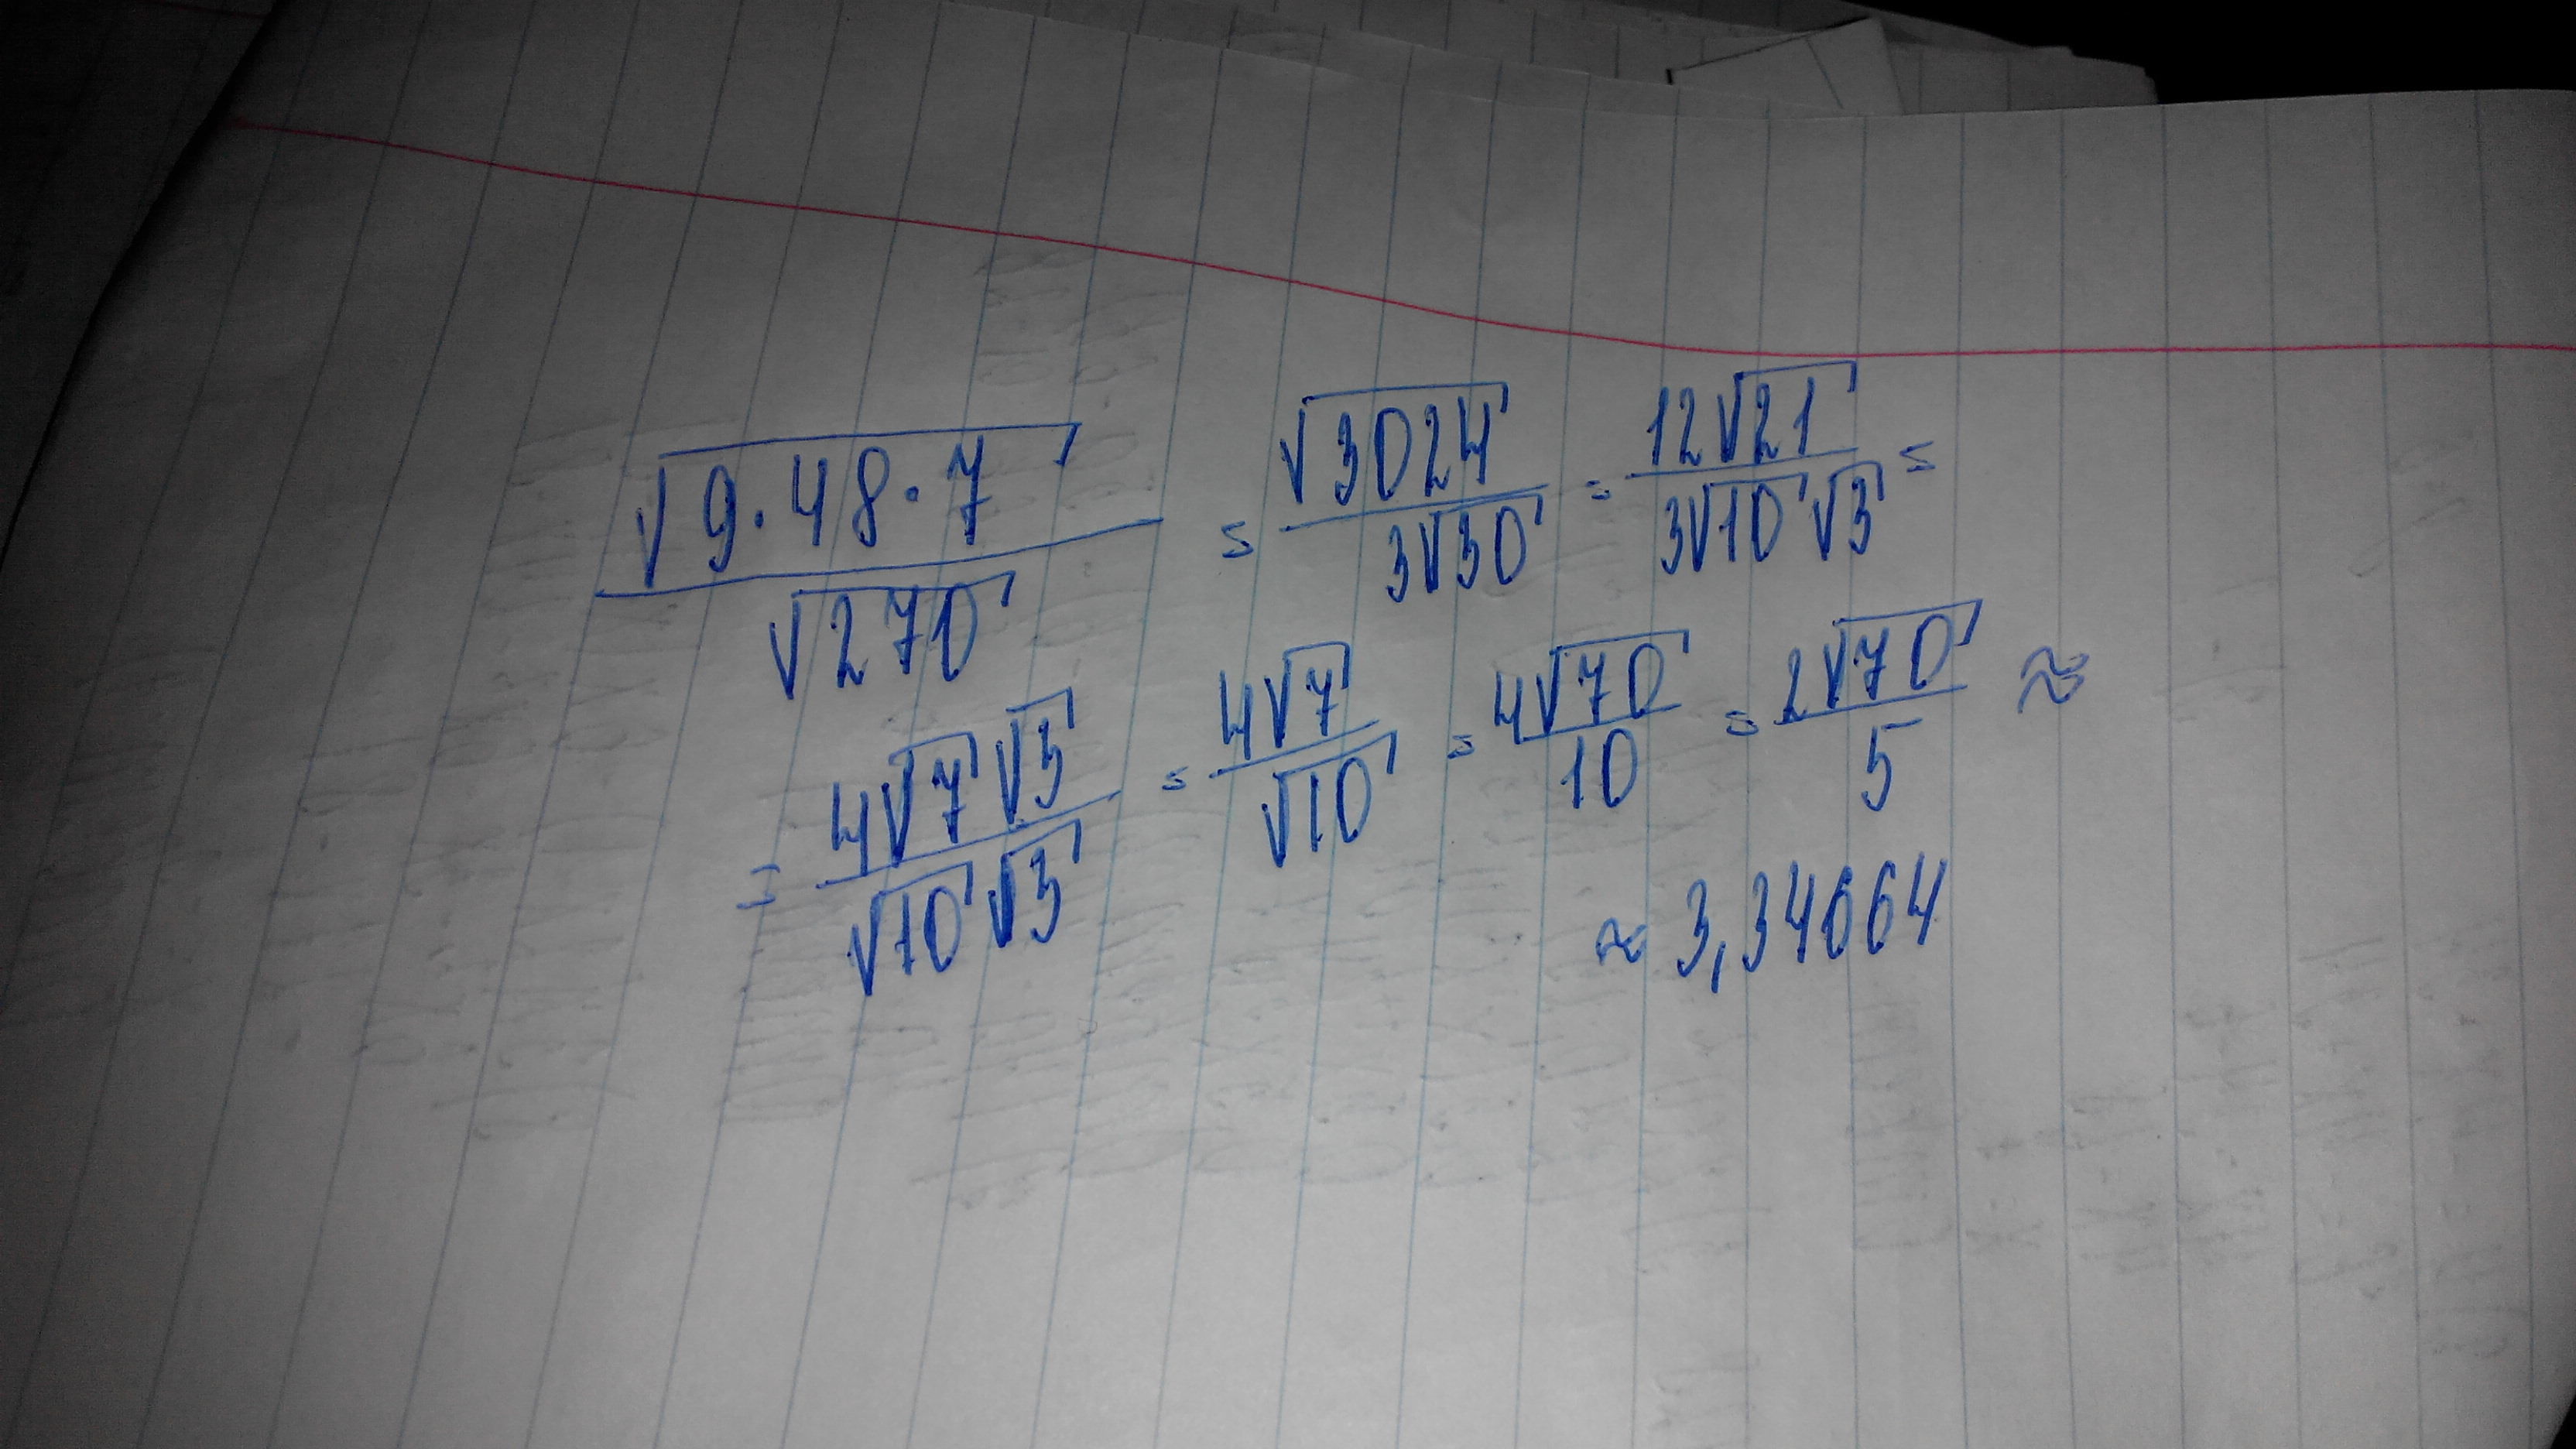 √(9·48·7) / √270 = √3024 / 3√30 = 12√21 / 3√10 √3 =
= 4√7 √3 / √10 √3 = 4√7 / √10 = 4√70 / 10 = 2√70 / 5 ≈
≈ 3,34664